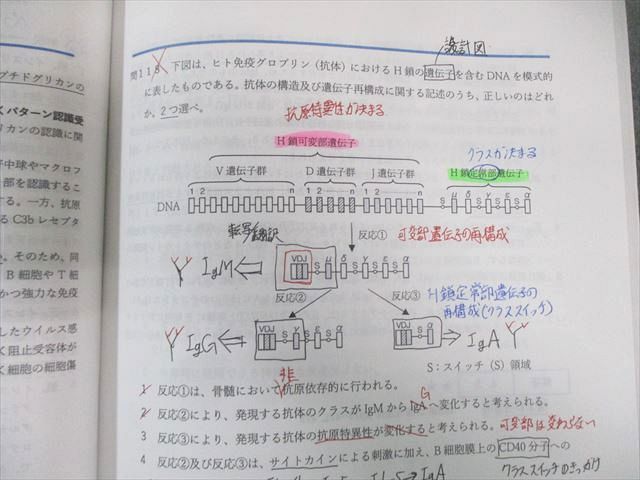 プチドグリカンの
くパターン認識受
リカンの認識に関
中球やマクロフ
部を認識するこ
する。一方、抗原
る C3b レセプタ
、そのため、同
B 細胞や T 細
かつ強力な免疫
したウイルス感
く阻止受容体が
く細胞の細胞傷
設計図
問 118 下図は、ヒト免疫グロブリン（抗体）における H 鎖の遺伝子を含む DNA を模式的
に表したものである。抗体の構造及び遺伝子再構成に関する記述のうち、正しいのはどれ
か。2つ選べ。
抗原特異性が決まる
H 鎖可変部遺伝子
クラスが決まる
V 遺伝子群 D 遺伝子群 J 遺伝子群
H 鎖定常部遺伝子
1 2 n 1 2 n 1 2 n
S μ δ S γ S ε S α
DNA
転写翻訳
反応①
可変部遺伝子の再構成
VDJ
S μ δ S γ S ε S α
IgM
反応②
反応③
H鎖定常部遺伝子の
再構成(クラススイッチ)
VDJ
S γ S ε S α
VDJ
S α
IgG
IgA
S：スイッチ（S）領域
非
1 反応①は、骨髄において抗原依存的に行われる。
G
2 反応②により、発現する抗体のクラスが IgM から IgA へ変化すると考えられる。
3 反応③により、発現する抗体の抗原特異性が変化すると考えられる。
可変部は変わらない
4 反応②及び反応③は、サイトカインによる刺激に加え、B 細胞膜上の CD40 分子への
クラススイッチのきっかけ
IgA